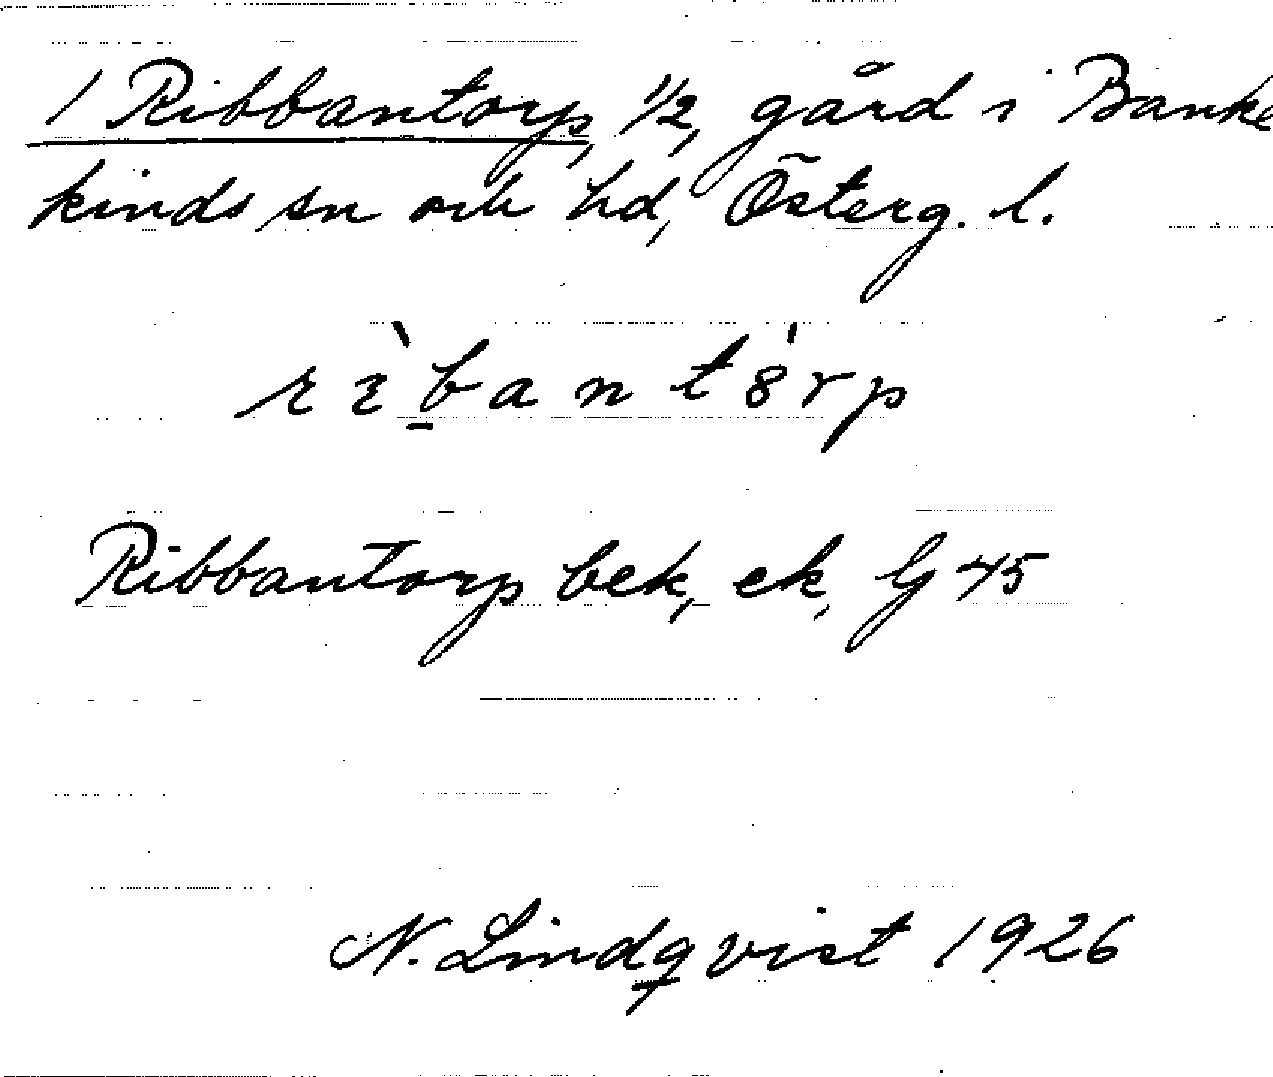 1 Ribbantorp, 1/2, gård i Banke
kinds sn och hd, Österg. l.
Ribbantorp bek, ek, G 45
N. Lindqvist 1926